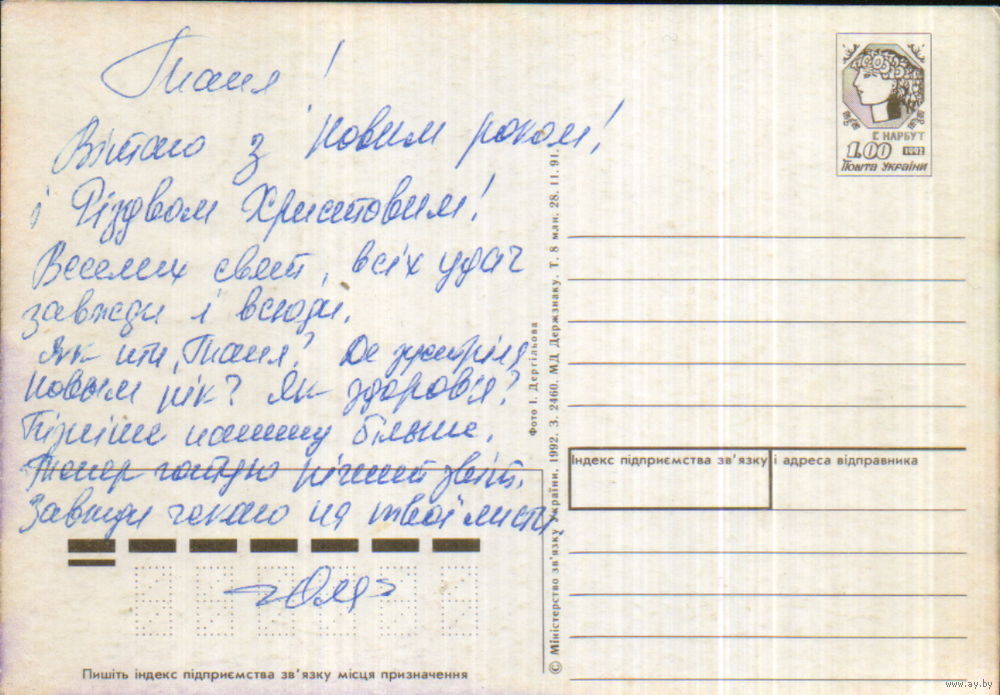 Таня!
Вітаю з Новим роком!
і Різдвом Христовим!
Веселих свят, всіх удач
завжди і всюди.
Як ти, Таня? Де зустріла
Новый рік? Як здоров'я?
Пізніше напишу більше.
Тепер готую річний звіт.
Завжди чекаю на твої листи.
Оля
Пишіть індекс підприємства зв'язку місця призначення
© Міністерство зв'язку України, 1992. З. 2460. МД Держзнаку. Т. 8 млн. 28.11.91.
Фото І. Дергільова
Г. НАРБУТ
1.00 1992
ПОШТА УКРАЇНИ
Індекс підприємства зв'язку і адреса відправника
www.ay.by